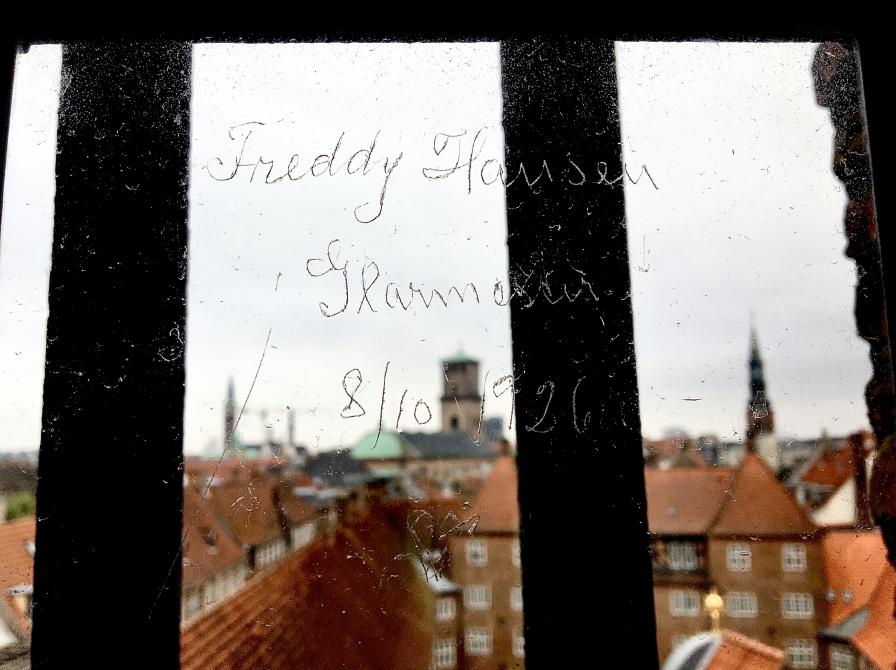 Freddy Hansen
Glarmester
8/10 1926